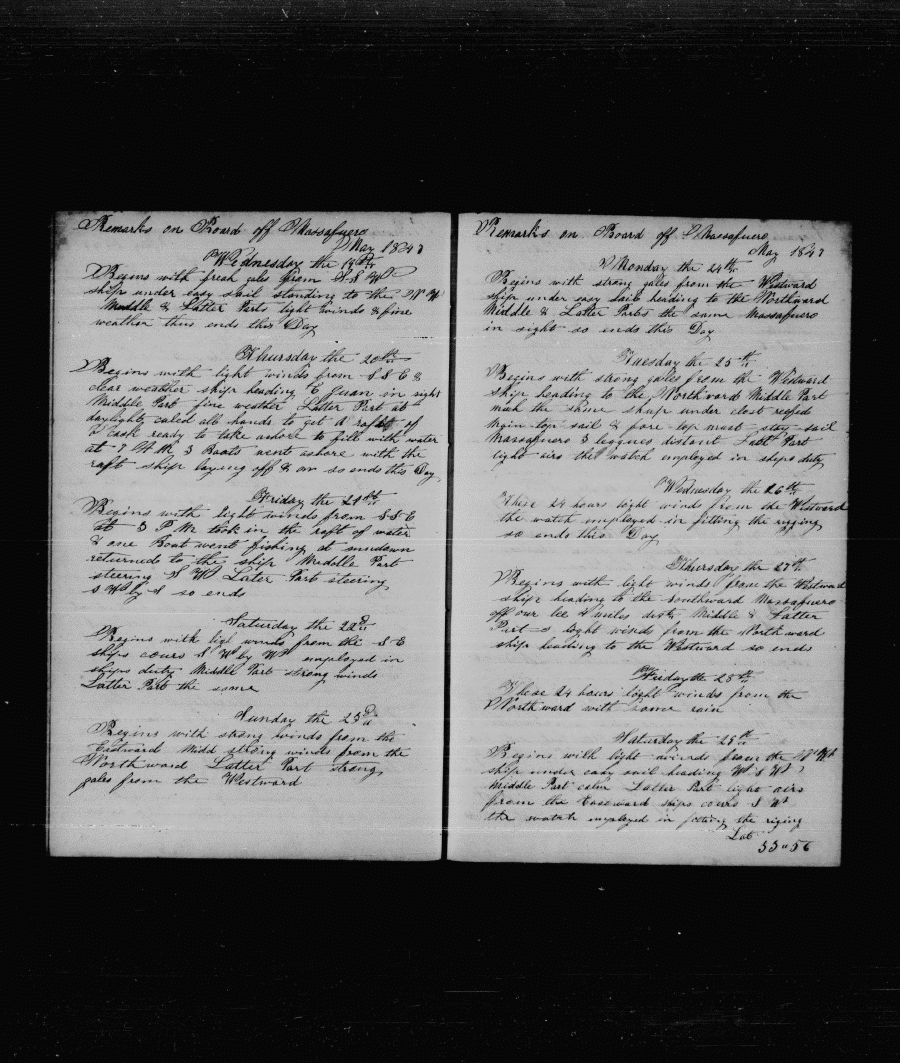 Remarks on Board off Massafuero
May 1847
Wednesday the 19th
Begins with fresh gales from S S W
ship under easy sail standing to the W
Middle & Latter Parts light winds & fine
weather thus ends this Day
Thursday the 20th
Begins with light winds from S S E &
clear weather ship heading E Juan in sight
Middle Part fine weather Latter Part at
daylight caled all hands to get a raft of
cask ready to take ashore to fill with water
at 7 A M 3 Boats went ashore with the
raft ship laying off & on so ends this Day
Friday the 21st
Begins with light winds from S S E
at 3 P M took in the raft of water
& one Boat went fishing at sundown
returned to the ship Middle Part
steering S W Later Part steering
S W by S so ends
Saturday the 22d
Begins with ligh winds from the S E
ships cours S W by W employed in
ships duty Middle Part strong winds
Latter Part the same
Sunday the 23d
Begins with strong winds from the
Eastward Midd strong winds from the
Northward Latter Part strong
gales from the Westward
Remarks on Board off Massafuero
May 1847
Monday the 24th
Begins with strong gales from the Westward
ship under easy sail heading to the Northward
Middle & Latter Parts the same Massafuero
in sight so ends this Day
Tuesday the 25th
Begins with strong gales from the Westward
ship heading to the Northward Middle Part
much the same ship under clost reefed
main top sail & fore top mast stay sail
Massafuero 3 leagues distant Latt Part
light airs the watch employed in ships duty
Wednesday the 26th
These 24 hours light winds from the Westward
the watch employed in fitting the rigging
so ends this Day
Thursday the 27th
Begins with light winds from the Westward
ship heading to the Southward Massafuero
off our lee miles dist Middle & Latter
Part light winds from the Northward
ship heading to the Westward so ends
Friday the 28th
These 24 hours light winds from the
Northward with some rain
Saturday the 29th
Begins with light winds from the W
ship under easy sail heading W S W
Middle Part calm Latter Part light airs
from the Easeward ships cours S W
the watch employed in fitting the riging
Lat
33" 56